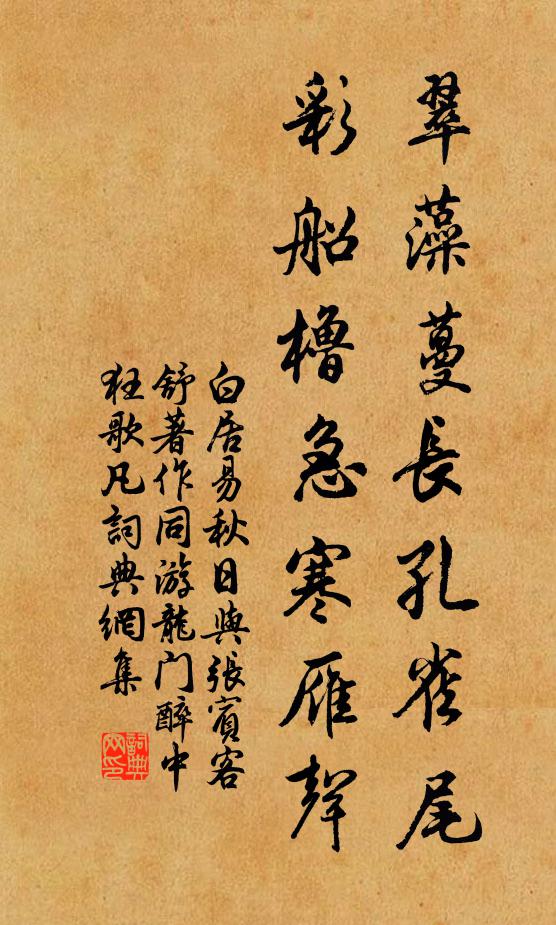 翠藻蔓長孔雀尾
彩船櫓急寒雁聲
白居易秋日與張賓客
舒著作同游龍門醉中
狂歌凡詞典網集
詞典
网印